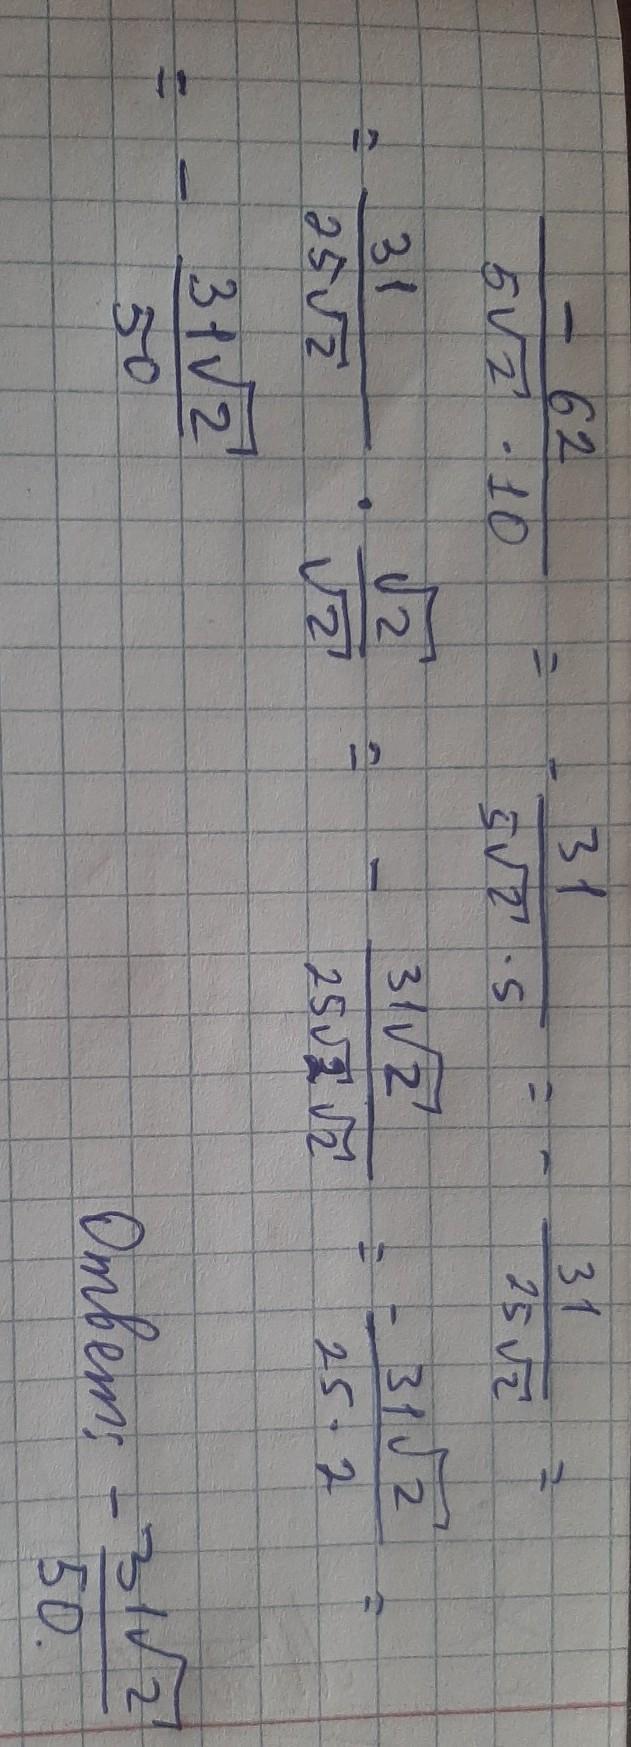 -62/(5√2 · 10) = - 31/(5√2 · 5) = - 31/(25√2) =
= 31/(25√2) · √2/√2 = - 31√2/(25√2√2) = - 31√2/(25 · 2) =
= - 31√2/50
Ответ: - 31√2/50.